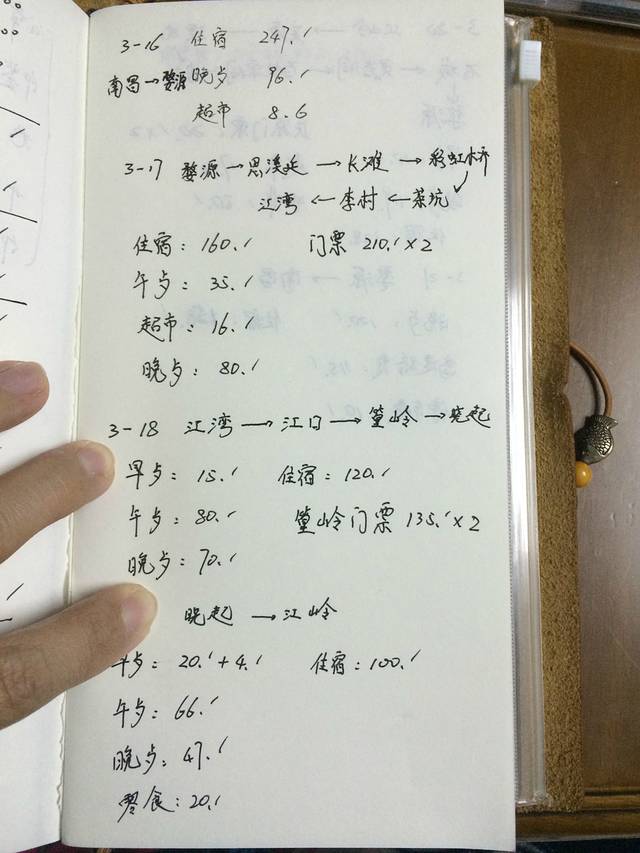 3-16 住宿 247.-
南昌→婺源 晚歺 96.-
超市 8.6
3-17 婺源→思溪延→长滩→彩虹桥
江湾←李村←茶坑
住宿：160.- 门票 210.-×2
午歺：35.-
超市：16.-
晚歺：80.-
3-18 江湾→江日→篁岭→晓起
早歺：15.- 住宿：120.-
午歺：80.- 篁岭门票 135.-×2
晚歺：70.-
晓起→江岭
早歺：20.-+4.- 住宿：100.-
午歺：66.-
晚歺：47.-
零食：20.-